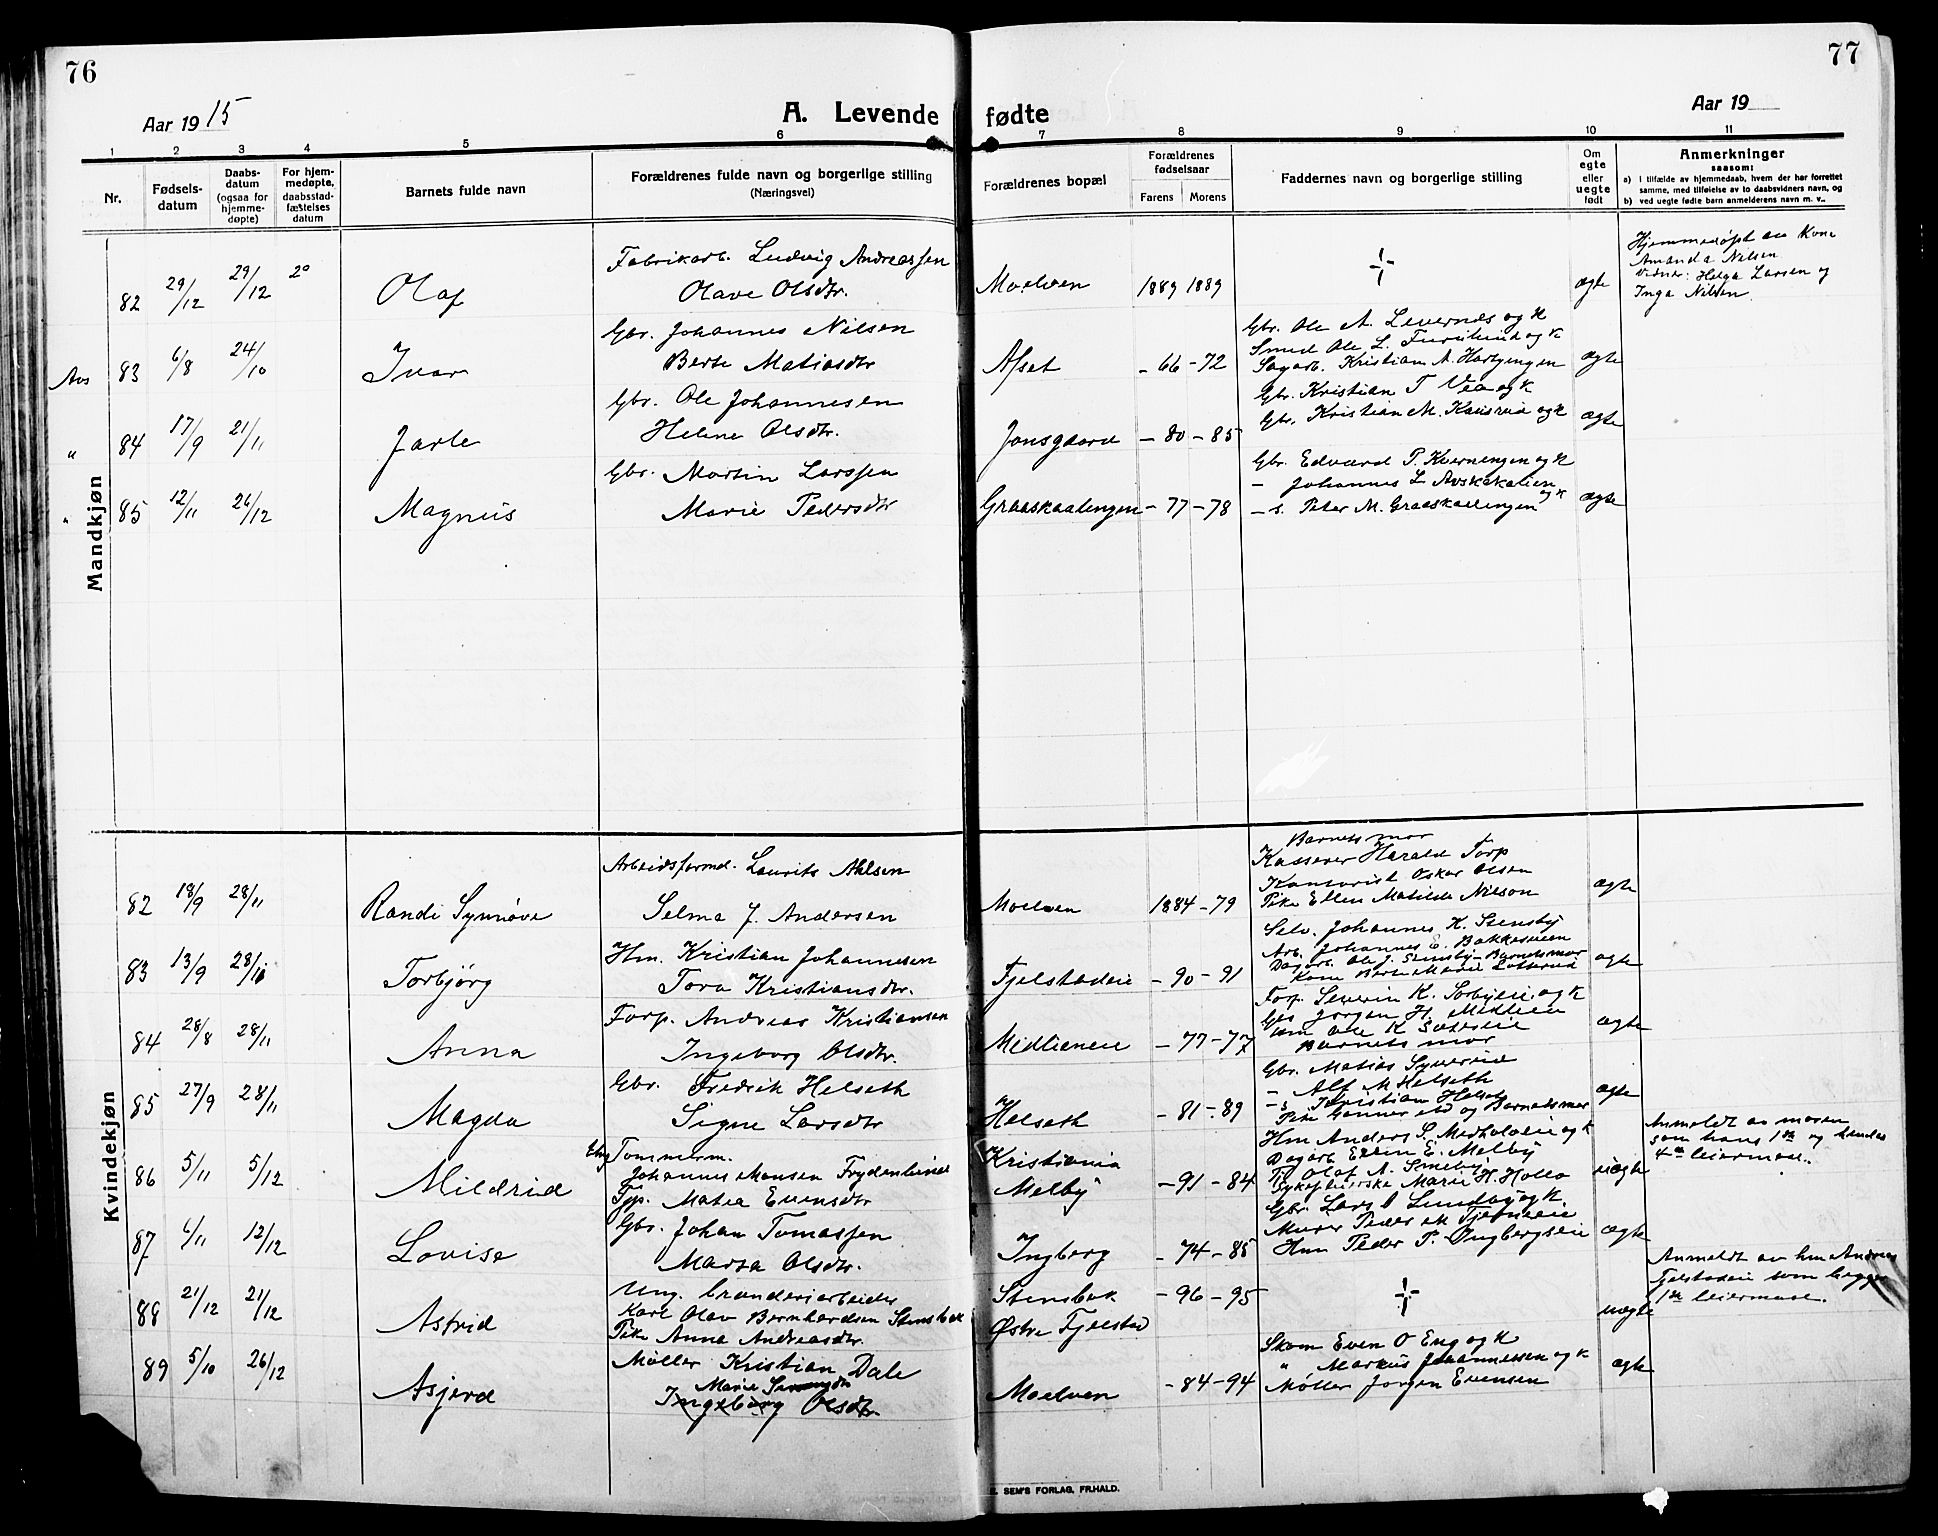 76
Aar 1915
A. Levende
1
2
3
4
5
6
Nr.
Fødsels-
datum
Daabs-
datum
(ogsaa for
hjemme-
døpte)
For hjem-
medøpte,
daabsstad-
fæstelses
datum
Barnets fulde navn
Forældrenes fulde navn og borgerlige stilling
(Næringsvei)
77
Aar 19
fødte
7
8
9
10
11
Forældrenes bopæl
Forældrenes
fødselsaar
Farens Morens
Faddernes navn og borgerlige stilling
Om
egte
eller
uegte
født
Anmerkninger
saasom:
a) I tilfælde av hjemmedaab, hvem der har forrettet
samme, med tilføielse av to daabsvidners navn, og
b) ved uegte fødte barn anmelderens navn m. v..
Mandkjøn
82 29/12 29/12 2° Olaf
Fabrikarb. Ludvig Andreassen
Olave Olsdtr.
Moelven 1889 1889 ægte
Hjemmedøpt av Kone
Amanda Nilsen
Vidner: Helga Larsen og
Inga Nilsen.
Avs 83 6/8 24/10 Ivar
Gbr. Johannes Nilsen
Berte Matiasdtr
Afset - 66 - 72
Gbr. Ole A. Levernæs og K
Smed Ole L. Furulund og K
Sagarb. Kristian A. Hartzengen
Gbr. Kristian T. Vea og K
ægte
" 84 17/9 21/11 Jarle
Gbr. Ole Johannesen
Helene Olsdtr.
Jonsgaard - 80 - 85
Gbr. Kristian M. Kausrud og K
ægte
" 85 12/11 26/12 Magnus
Gbr. Martin Larssen
Marie Pedersdtr
Graaskaalengen - 77 - 78
Gbr. Edvard P. Kvernengen og K
- Johannes L. Avskakalien og K
- s. Peter M. Graaskaalengen
ægte
Kvindekjøn
82 18/9 28/11 Randi Synnøve
Arbeidsformd. Laurits Ahlsen
Selma J. Andersen
Moelven 1884 - 79
Barnets mor
Kasserer Harald Torp
Kontorist Oskar Olsen
Pike Ellen Matilde Nilson
ægte
83 13/9 28/11 Torbjørg
Hm. Kristian Johannesen
Tora Kristiansdtr.
Fjelstadeie - 90 - 91
Selv. Johannes K. Stensby
Arb. Johannes E. Bakkesveen
Dagarb. Ole J. Stensby - Barnets mor
Kone Berte Marie
ægte
84 28/8 28/11 Anna
Forp. Andreas Kristiansen
Ingeborg Olsdtr.
Midlieneie - 77 - 77
Forp. Severin K. Sorbyeie og K
Gbr Jørgen H. Midlien
Hm Ole K
Barnets mor
ægte
85 27/9 28/11 Magda
Gbr. Fredrik Helseth
Signe Larsdtr
Helseth - 81 - 89
Gbr. Matias
- Alf M Helseth
- s. Kristian Helset
Pike Gunner og Barnets mor
ægte
86 5/11 5/12 Mildrid
Ung Tømmerm.
Johannes Hansen Frydenlund
Pige. Matea Evensdtr
Kristiania
Melby - 91 - 84
Hm Anders S. Medhaldeie og K
Dagarb Edvin E. Melby
Olaf A. Smeby
Sykepleierske Marie H. Holto
uægte
Anmeldt av moren
som hans 1ste og hendes
4de leiermaal.
87 6/11 12/12 Lovise
Gbr. Johan Tomassen
Marta Olsdtr.
Ingberg - 74 - 85
Gbr. Lars Lundby og K.
Murer Peder M Tjerneeie
Hm Peder P. Ingbergseie
ægte
88 21/12 21/12 Astrid
Ung. branderiarbeider
Karl Olav Bernhardsen Stensbak
Pike Anna Andreasdtr.
Stensbak - 96 - 95
Østre Fjelstad
uægte
Anmeldt av hm Andreas
Fjelstadeie som begges
1ste leiermaal.
89 5/10 26/12 Asjerd
Møller Kristian Dale
Marie
Ingeborg Olsdtr.
Moelven - 84 - 94
Skom Even O Eng og K
" Markus Johannessen og K
Møller Jørgen Evensen
ægte
SEM'S FORLAG, FR.HALD.